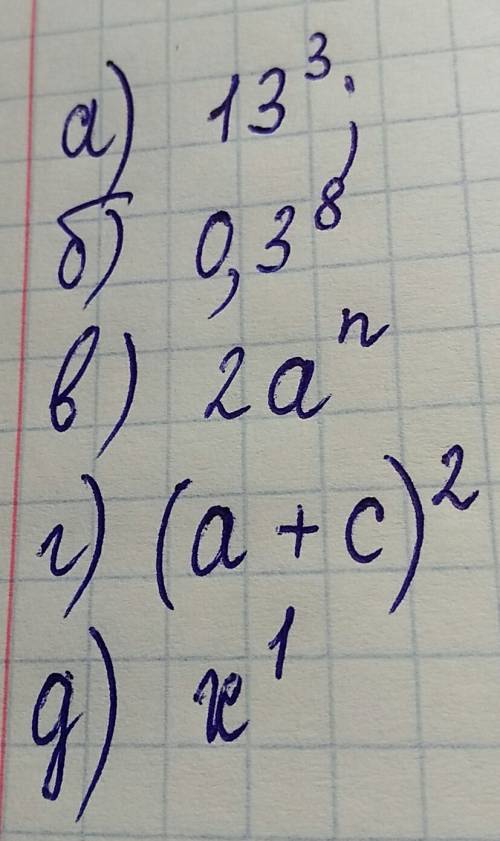 а) 13³;
б) 0,3⁸
в) 2aⁿ
г) (a + c)²
д) x¹